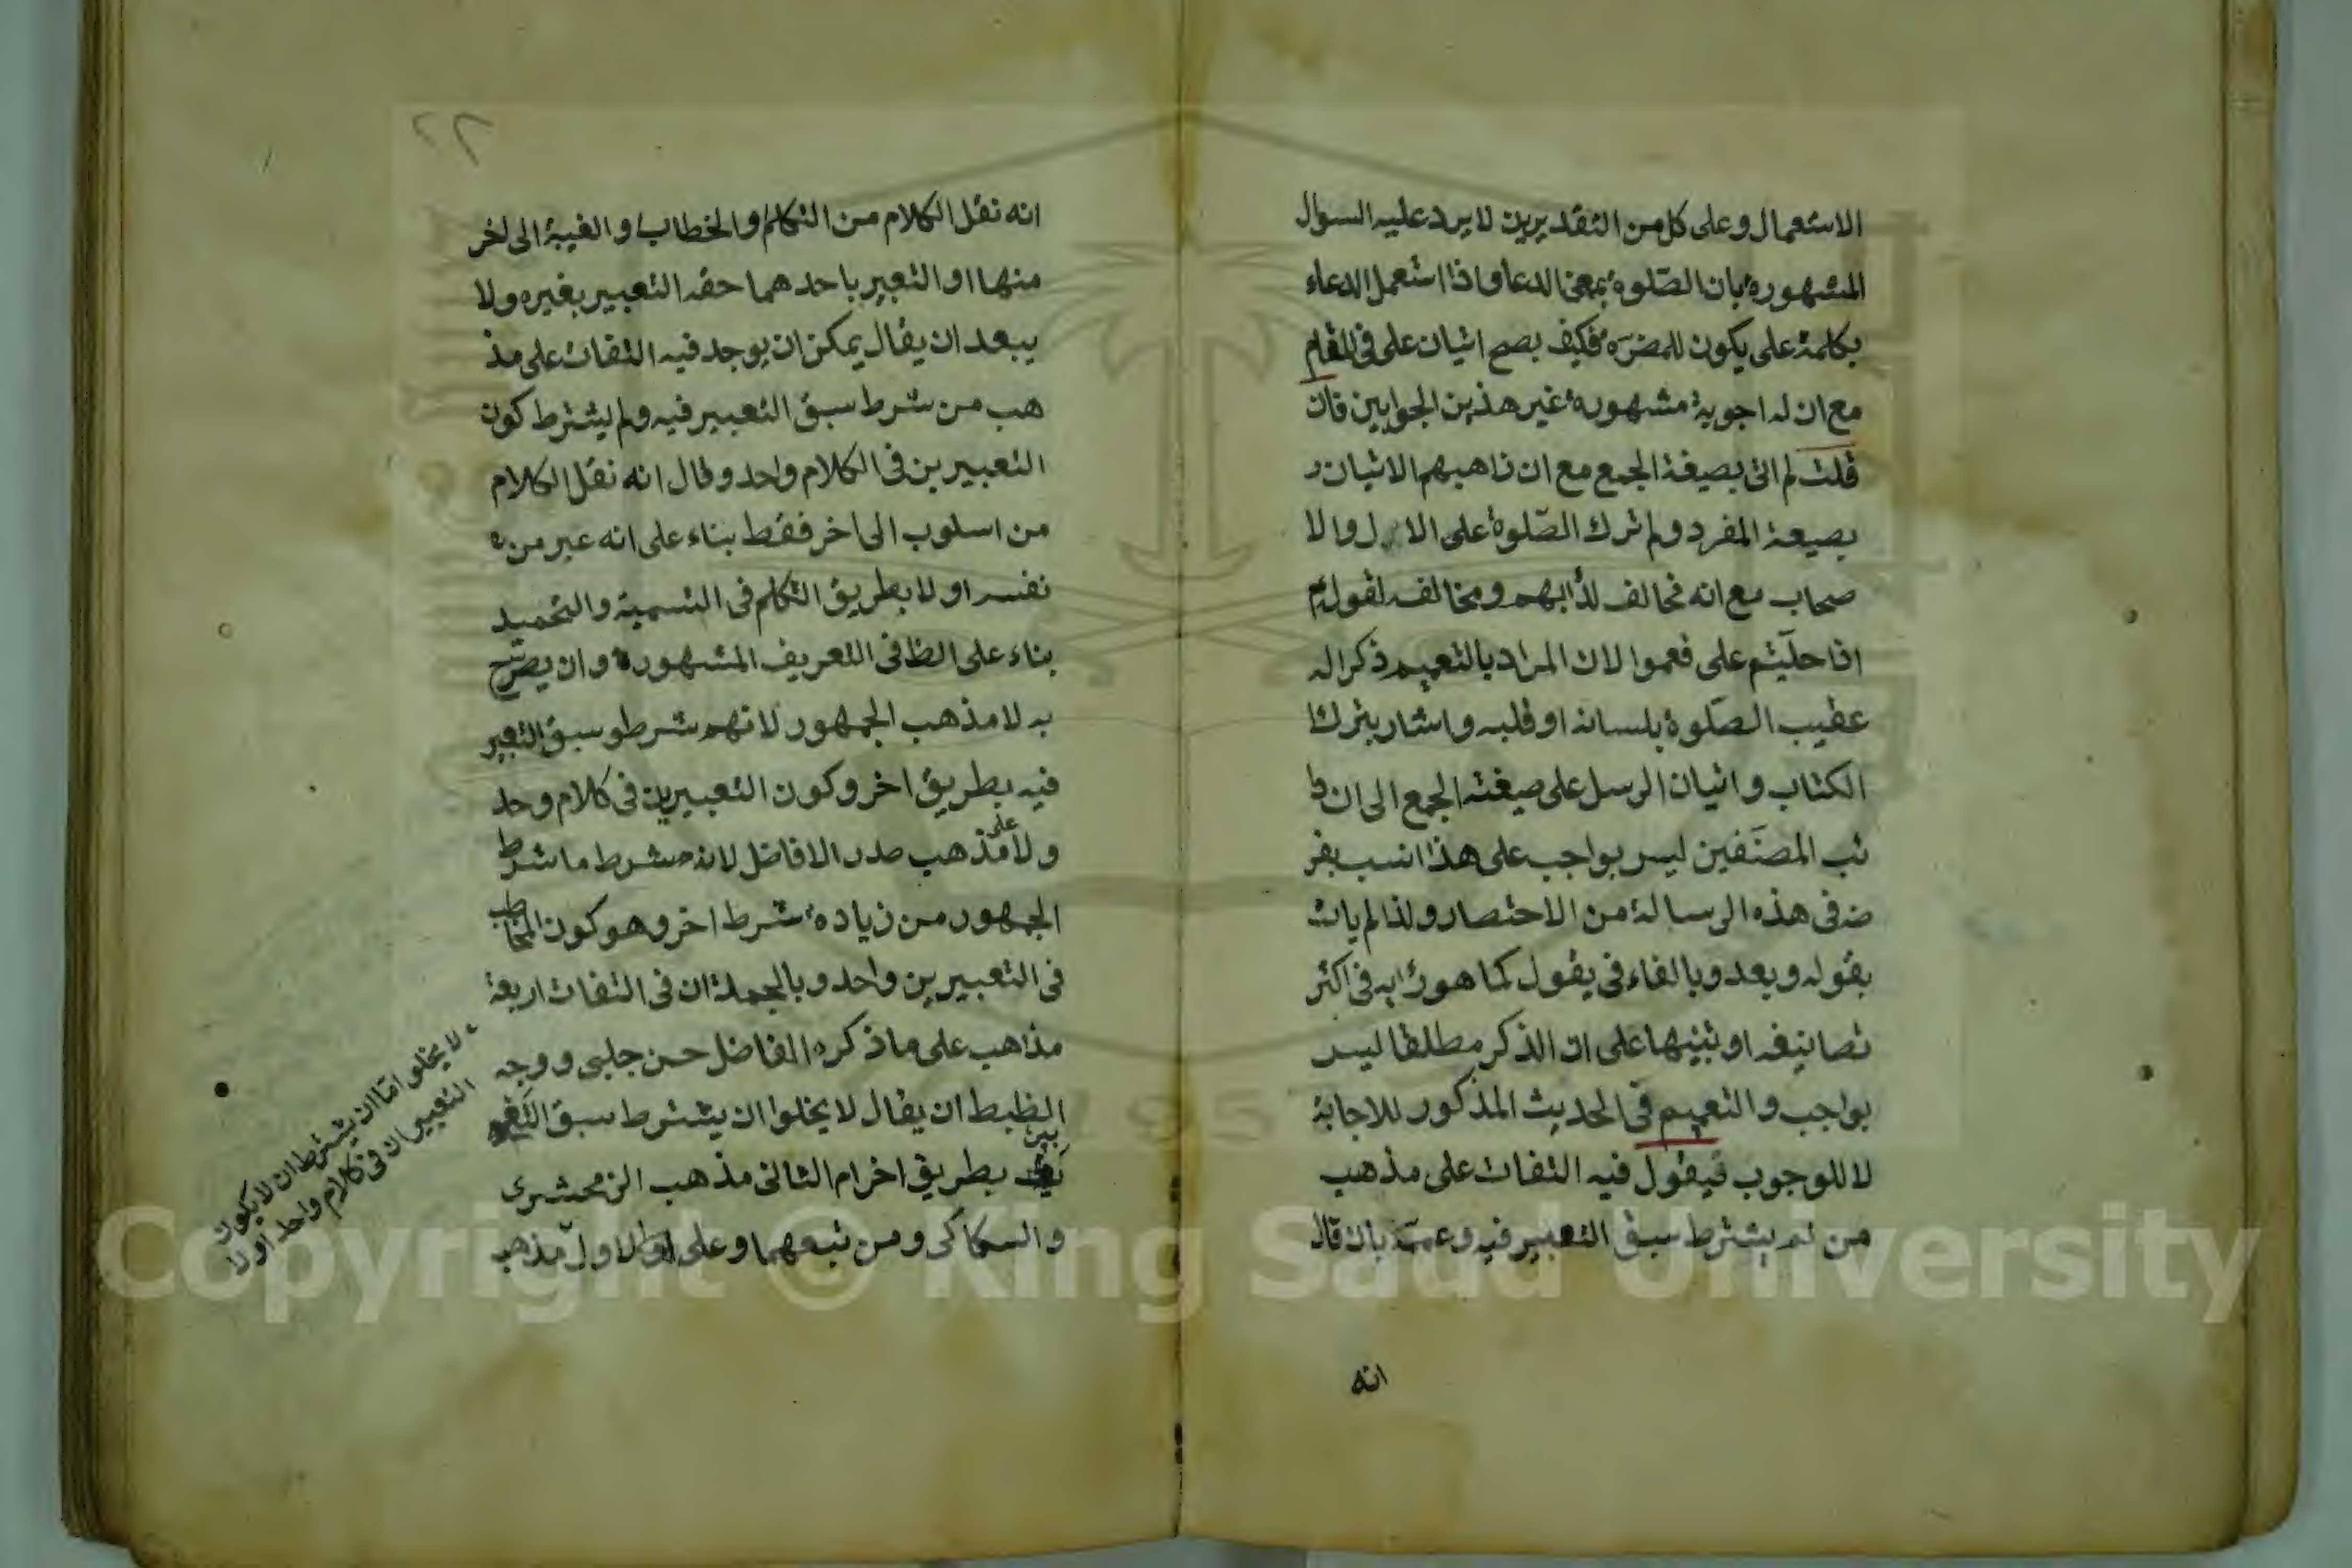 الاستعمال وعلى كل من التقديرين لا يرد عليه السوال
المشهورة بان الصلوة بمعنى الدعا واذا استعمل الدعاء
بكلمة على يكون للمضرة فكيف يصح اتيان على في المقام
مع ان له اجوبة مشهورة غير هذين الجوابين فان
قلت لم اتى بصيغة الجمع مع ان ذاهبهم الاتيان
بصيغة المفرد ولم ترك الصلوة على الال والا
صحاب مع انه مخالف لدأبهم ومخالف لقوله
اذا صليتم على فعمموا لان المراد بالتعميم ذكر اله
عقيب الصلوة بلسانه او قلبه واشار بترك
الكتاب واتيان الرسل على صيغة الجمع الى ان دا
ئب المصنفين ليس بواجب على هذا انسب بغر
ضه في هذه الرسالة من الاختصار ولذا لم يات
بقوله وبعد وبالفاء في يقول كما هو دأبه في اكثر
تصانيفه او تنبيها على ان الذكر مطلقا ليس
بواجب والتعميم في الحديث المذكور للاجابة
لا للوجوب فيقول فيه التفات على مذهب
من لم يشترط سبق التعبير فيه وعممه بان قال
انه
٢٢
انه نقل الكلام من التكلم والخطاب والغيبة الى اخر
منها او التعبير باحدهما حقه التعبير بغيره ولا
يبعد ان يقال يمكن ان يوجد فيه التفات على مذ
هب من شرط سبق التعبير فيه ولم يشترط كون
التعبيرين في الكلام واحد وقال انه نقل الكلام
من اسلوب الى اخر فقط بناء على انه عبر من
نفسه اولا بطريق التكلم في التسمية والتحميد
بناء على الظا في التعريف المشهورة وان يصرح
به لا مذهب الجمهور لانهم شرطو سبق التعبير
فيه بطريق اخر وكون التعبيرين في كلام وحد
ولا على مذهب صدر الافاضل لانه شرط ما شرط
الجمهور من زيادة شرط اخر وهو كون المخاطب
في التعبيرين واحد وبالجملة ان في التفات اربعة
مذاهب على ما ذكره الفاضل حسن جلبى ووجه
الظبط ان يقال لا يخلوا ان يشترط سبق
بطريق اخر ام الثانى مذهب الزمحشرى
والسكاكى ومن تبعهما وعلى الاول مذهب
لا يخلو اما ان يشترط ان لا يكون
التعبيران في كلام واحد او لا
Copyright © King Saud University